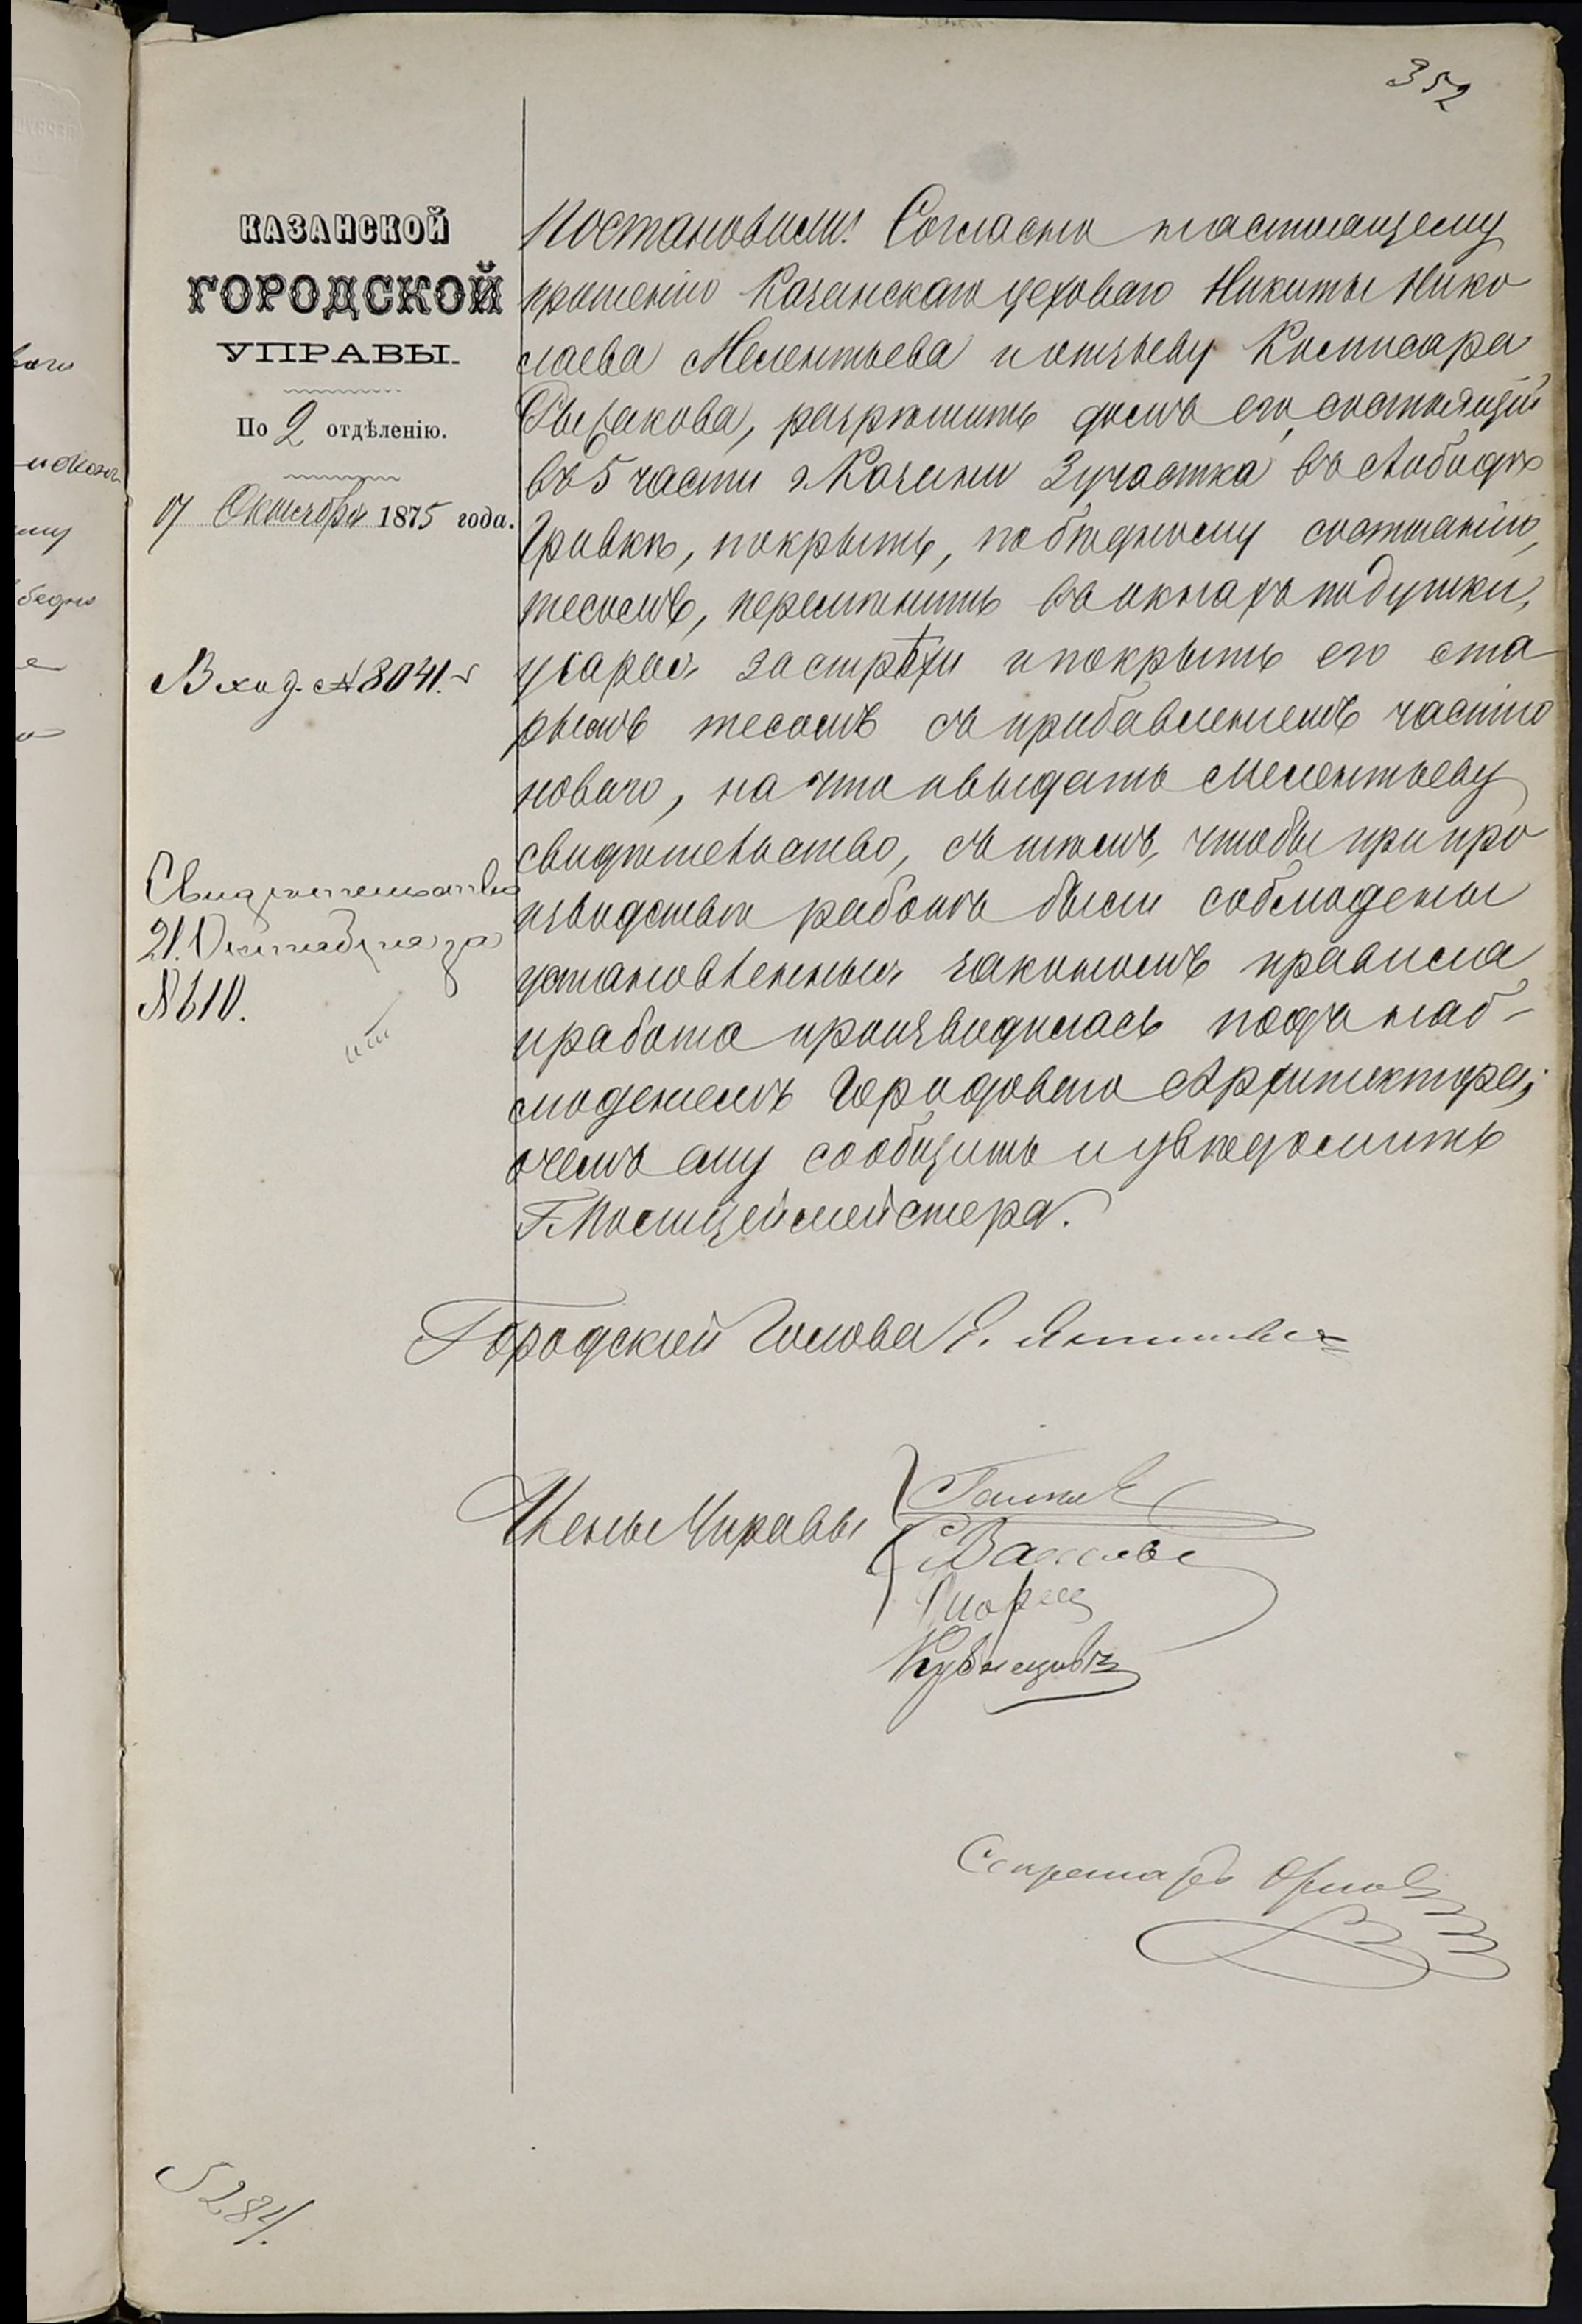 352
КАЗАНСКОЙ
ГОРОДСКОЙ
УПРАВЫ.
По 2 отдѣленію.
17 Октября 1875 года.
Вход. № 8041.
Свидѣтельство
21. Октября за
№ 610.
Постановили: Согласно настоящему
прошенію Казанскаго цеховаго Никиты Нико
лаева Мелентьева и отзыву Комисара
Рыбакова, разрѣшить домъ его, состоящій
въ 5 части г. Казани 3 участка въ
Гривкѣ, покрыть, по бѣдному состоянію,
тесомъ, перемѣнить въ окнахъ подушки,
у сарая застрѣхи и покрыть его ста
рымъ тесомъ съ прибавленіемъ частію
новаго, на что и выдать Мелентьеву
свидѣтельство, съ тѣмъ, чтобы при про
изводствѣ работъ были соблюдены
установленныя закономъ правила
и работа производилась подъ наб-
люденіемъ Городоваго Архитектора;
о чемъ ему сообщить и увѣдомить
Г. Полицеймейстера.
Городской Голова Е.
Члены Управы
Кузнецовъ
Секретарь Орловъ
5284.